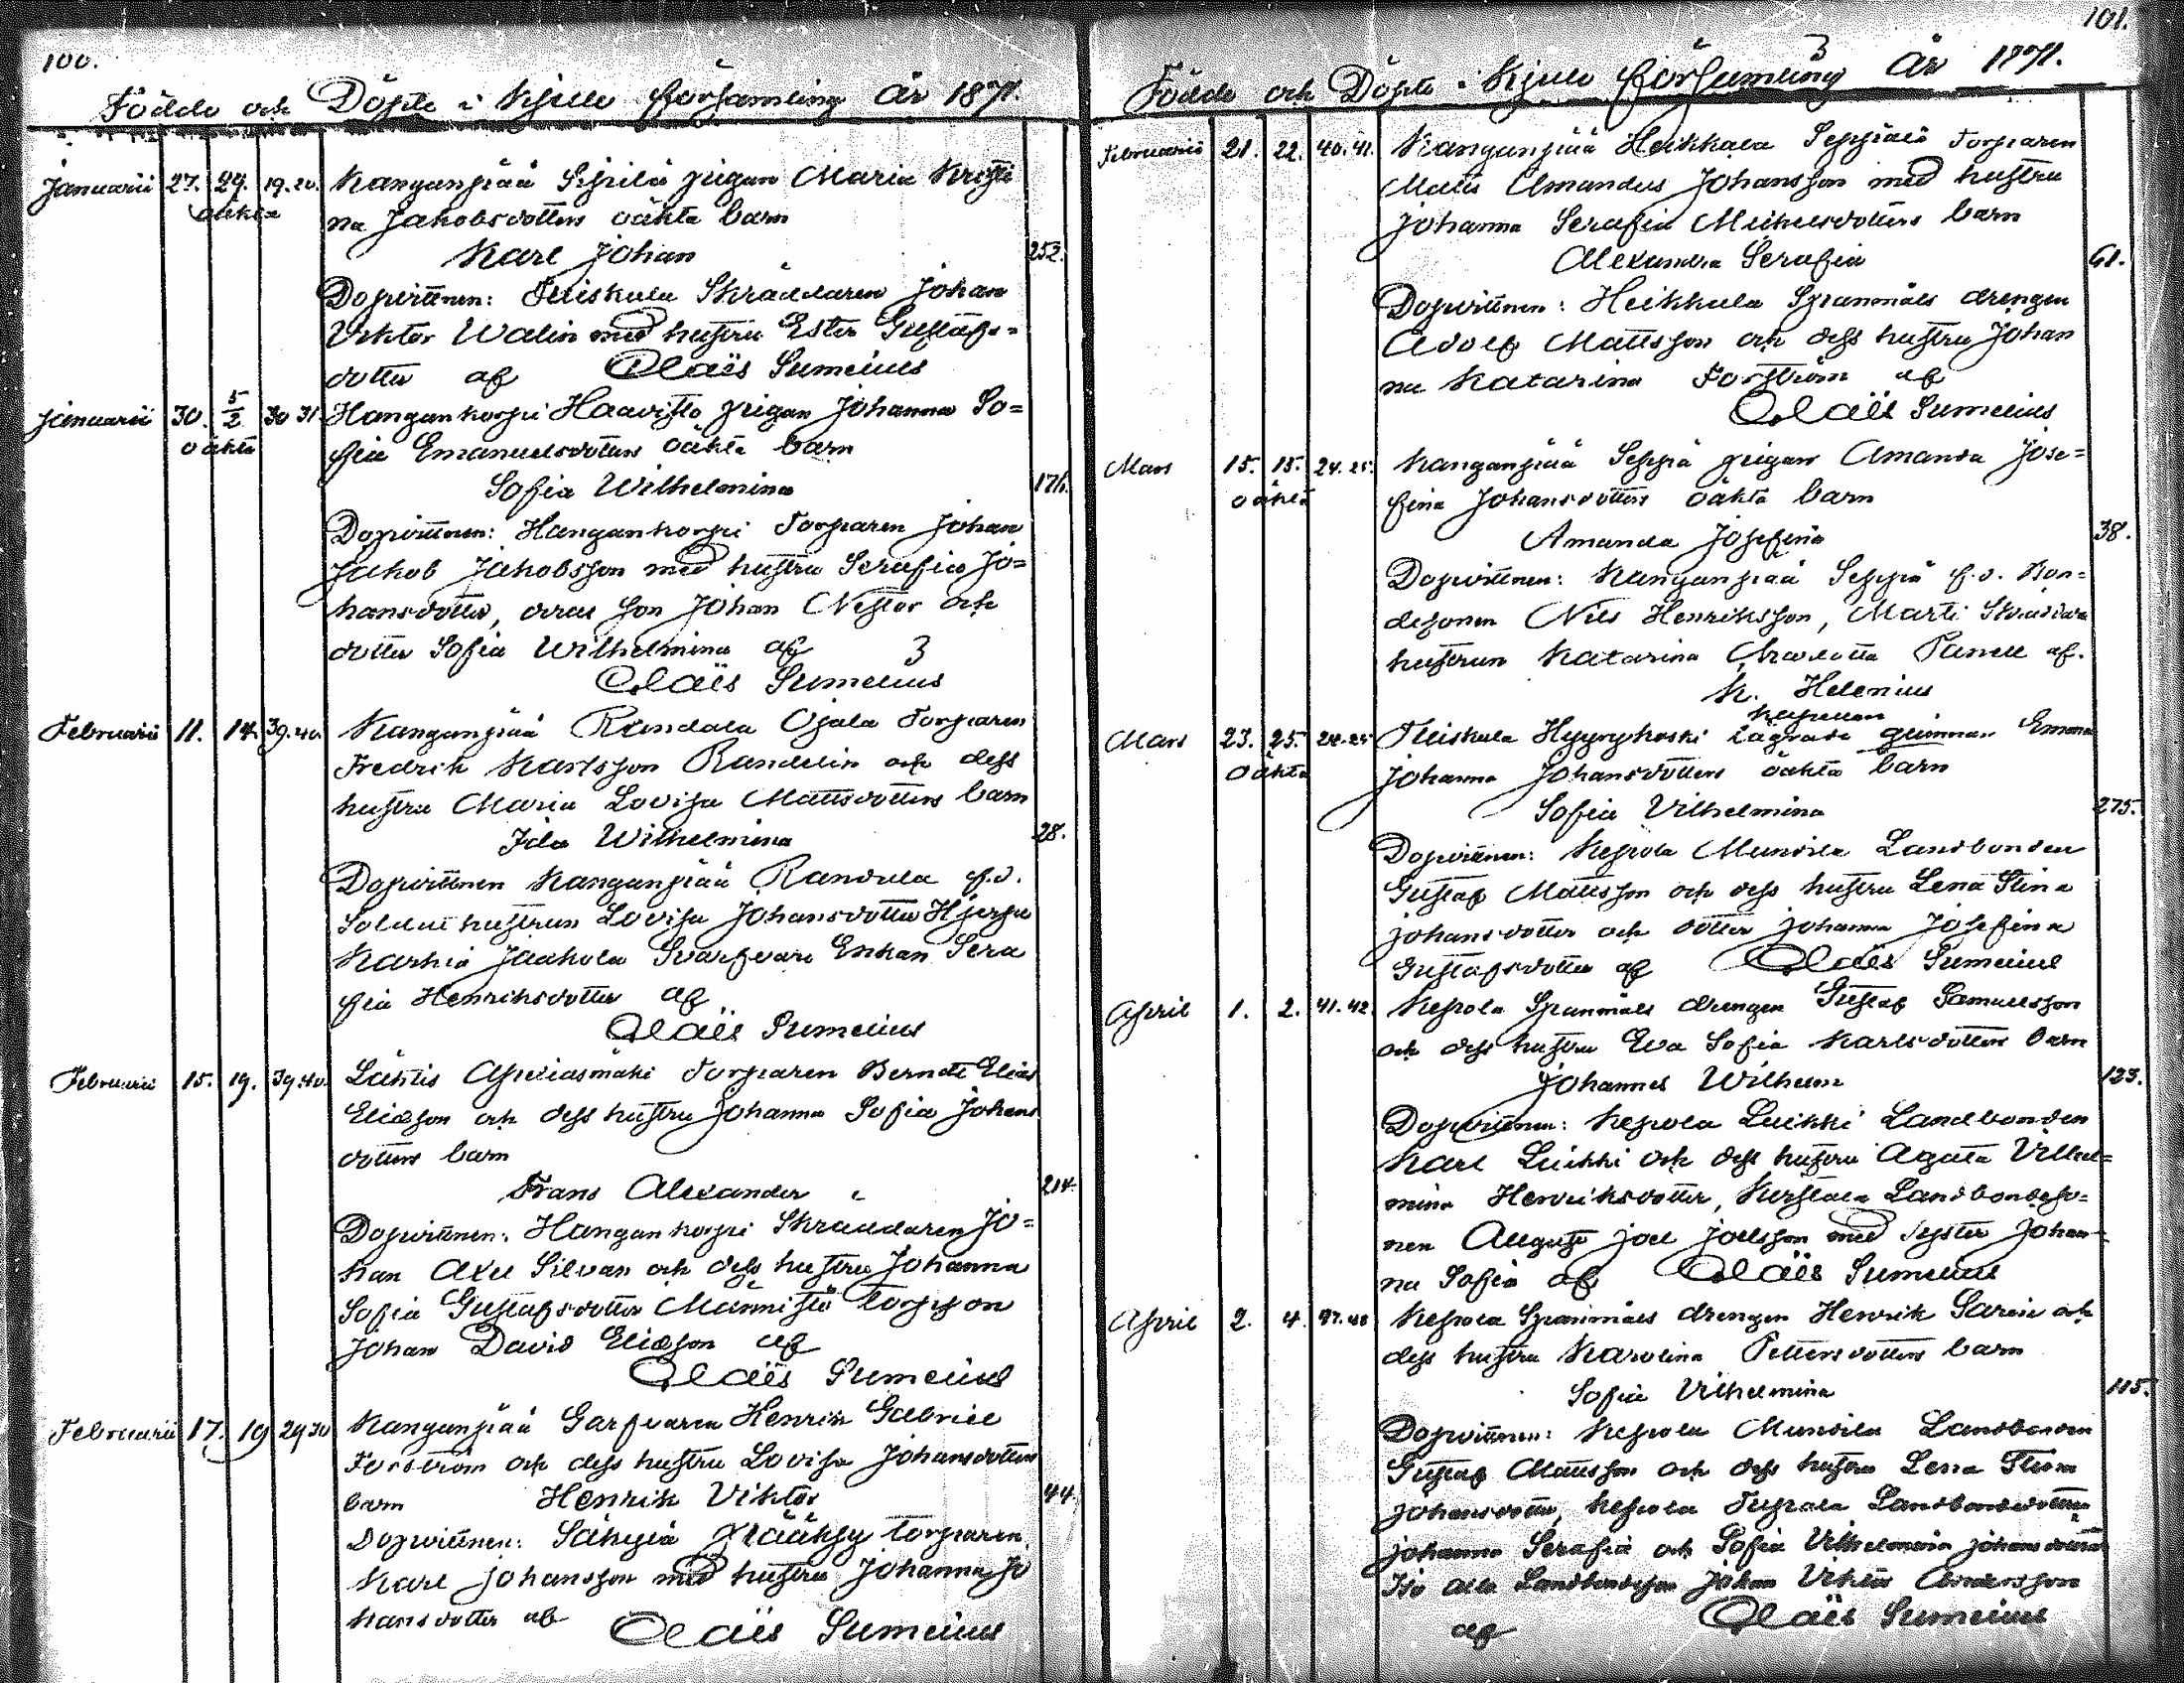 100.
Födde och Döpte i Kjulo församling År 1871.
Januarii 27. 29. 19.20. Kanganpää Seppilä pigan Maria Kristi
oäkta na Jakobsdotters oäkta barn
Karl Johan 252.
Dopvittnen: Tuiskula Skräddaren Johan
Viktor Walin med hustru Ester Gustafs=
dotter af Claës Sumelius
Januarii 30. 5/2 30 31. Hangankorpi Haavisto pigan Johanna So=
oäkta fia Emanuelsdotters oäkta barn
Sofia Wilhelmina 176.
Dopvittnen: Hangankorpi Torparen Johan
Jakob Jakobsson med hustru Serafia Jo=
hansdotter, deras son Johan Nestor och
dotter Sofia Wilhelmina af
Claës Sumelius
Februarii 11. 14. 39.40. Kanganpää Randala Ojala Torparen
Fredrik Karlsson Randelin och dess
hustru Maria Lovisa Mattsdotters barn
Ida Wilhelmina 28.
Dopvittnen Kanganpää Randala f.d.
Soldat hustrun Lovisa Johansdotter Hjerpe
Karhia Jaakola Svarfvare Enkan Sera
fia Henriksdotter af
Claës Sumelius
Februarii 15. 19. 39.40. Lähtis Torparen Berndt Elias
Eliasson och dess hustru Johanna Sofia Johans
dotters barn
Frans Alexander 214.
Dopvittnen: Hangankorpi Skräddaren Jo=
han Axel Silvan och dess hustru Johanna
Sofia Gustafsdotter Männistö torpson
Johan David Eliasson af
Claës Sumelius
Februarii 17. 19 29 30 Kanganpää Garfvaren Henrik Gabriel
Forström och dess hustru Lovisa Johansdotters
barn Henrik Viktor 44.
Dopvittnen: Säkylä Pääksy torparen
Karl Johansson med hustru Johanna Jo
hansdotter af Claës Sumelius
101.
Födde och Döpte i Kjulo församling År 1871.
Februarii 21. 22. 40.41. Kanganpää Heikkala Seppälä Torparen
Matts Amandus Johansson med hustru
Johanna Serafia Michelsdotters barn
Alexandra Serafia 61.
Dopvittnen: Heikkala Spanmåls drengen
Adolf Mattsson och dess hustru Johan
na Katarina Forström af
Claës Sumelius
Mars 15. 15. 24.25. Kanganpää Seppä pigan Amanda Jose=
oäkta fina Johansdotters oäkta barn
Amanda Josefina 38.
Dopvittnen: Kanganpää Seppä f.d. Bon=
desonen Nils Henriksson, Martti
hustrun Katarina Charlotta af.
K. Helenius
kapellan
Mars 23. 25. 24.25 Tuiskula Hyyrynkoski lägrade qvinnan Emma
oäkta Johanna Johansdotters oäkta barn
Sofia Vilhelmina 275.
Dopvittnen: Kepola Mundila Landbonden
Gustaf Mattsson och dess hustru Lena Stina
Johansdotter och dotter Johanna Josefina
Gustafsdotter af Claës Sumelius
April 1. 2. 41.42. Kepola Spanmåls drengen Gustaf Samuelsson
och dess hustru Eva Sofia Karlsdotters barn
Johannes Wilhelm 123.
Dopvittnen: Kepola Luikki Landbonden
Karl Luikki och dess hustru Agata Vilhel=
mina Henriksdotter, Landbondeso=
nen August Joel Joelsson med syster Johan=
na Sofia af Claës Sumelius
April 2. 4. 47.48 Kepola Spanmåls drengen Henrik Sarin och
dess hustru Karolina Pettersdotters barn
Sofia Vilhelmina 115.
Dopvittnen: Kepola Mundila Landbonden
Gustaf Mattsson och dess hustru Lena Stina
Johansdotter, Kepola Landbondedöttrar
Johanna Serafia och Sofia Vilhelmina Johansdöttrar
Iso Landbondeson Johan Viktor Andersson
af Claës Sumelius